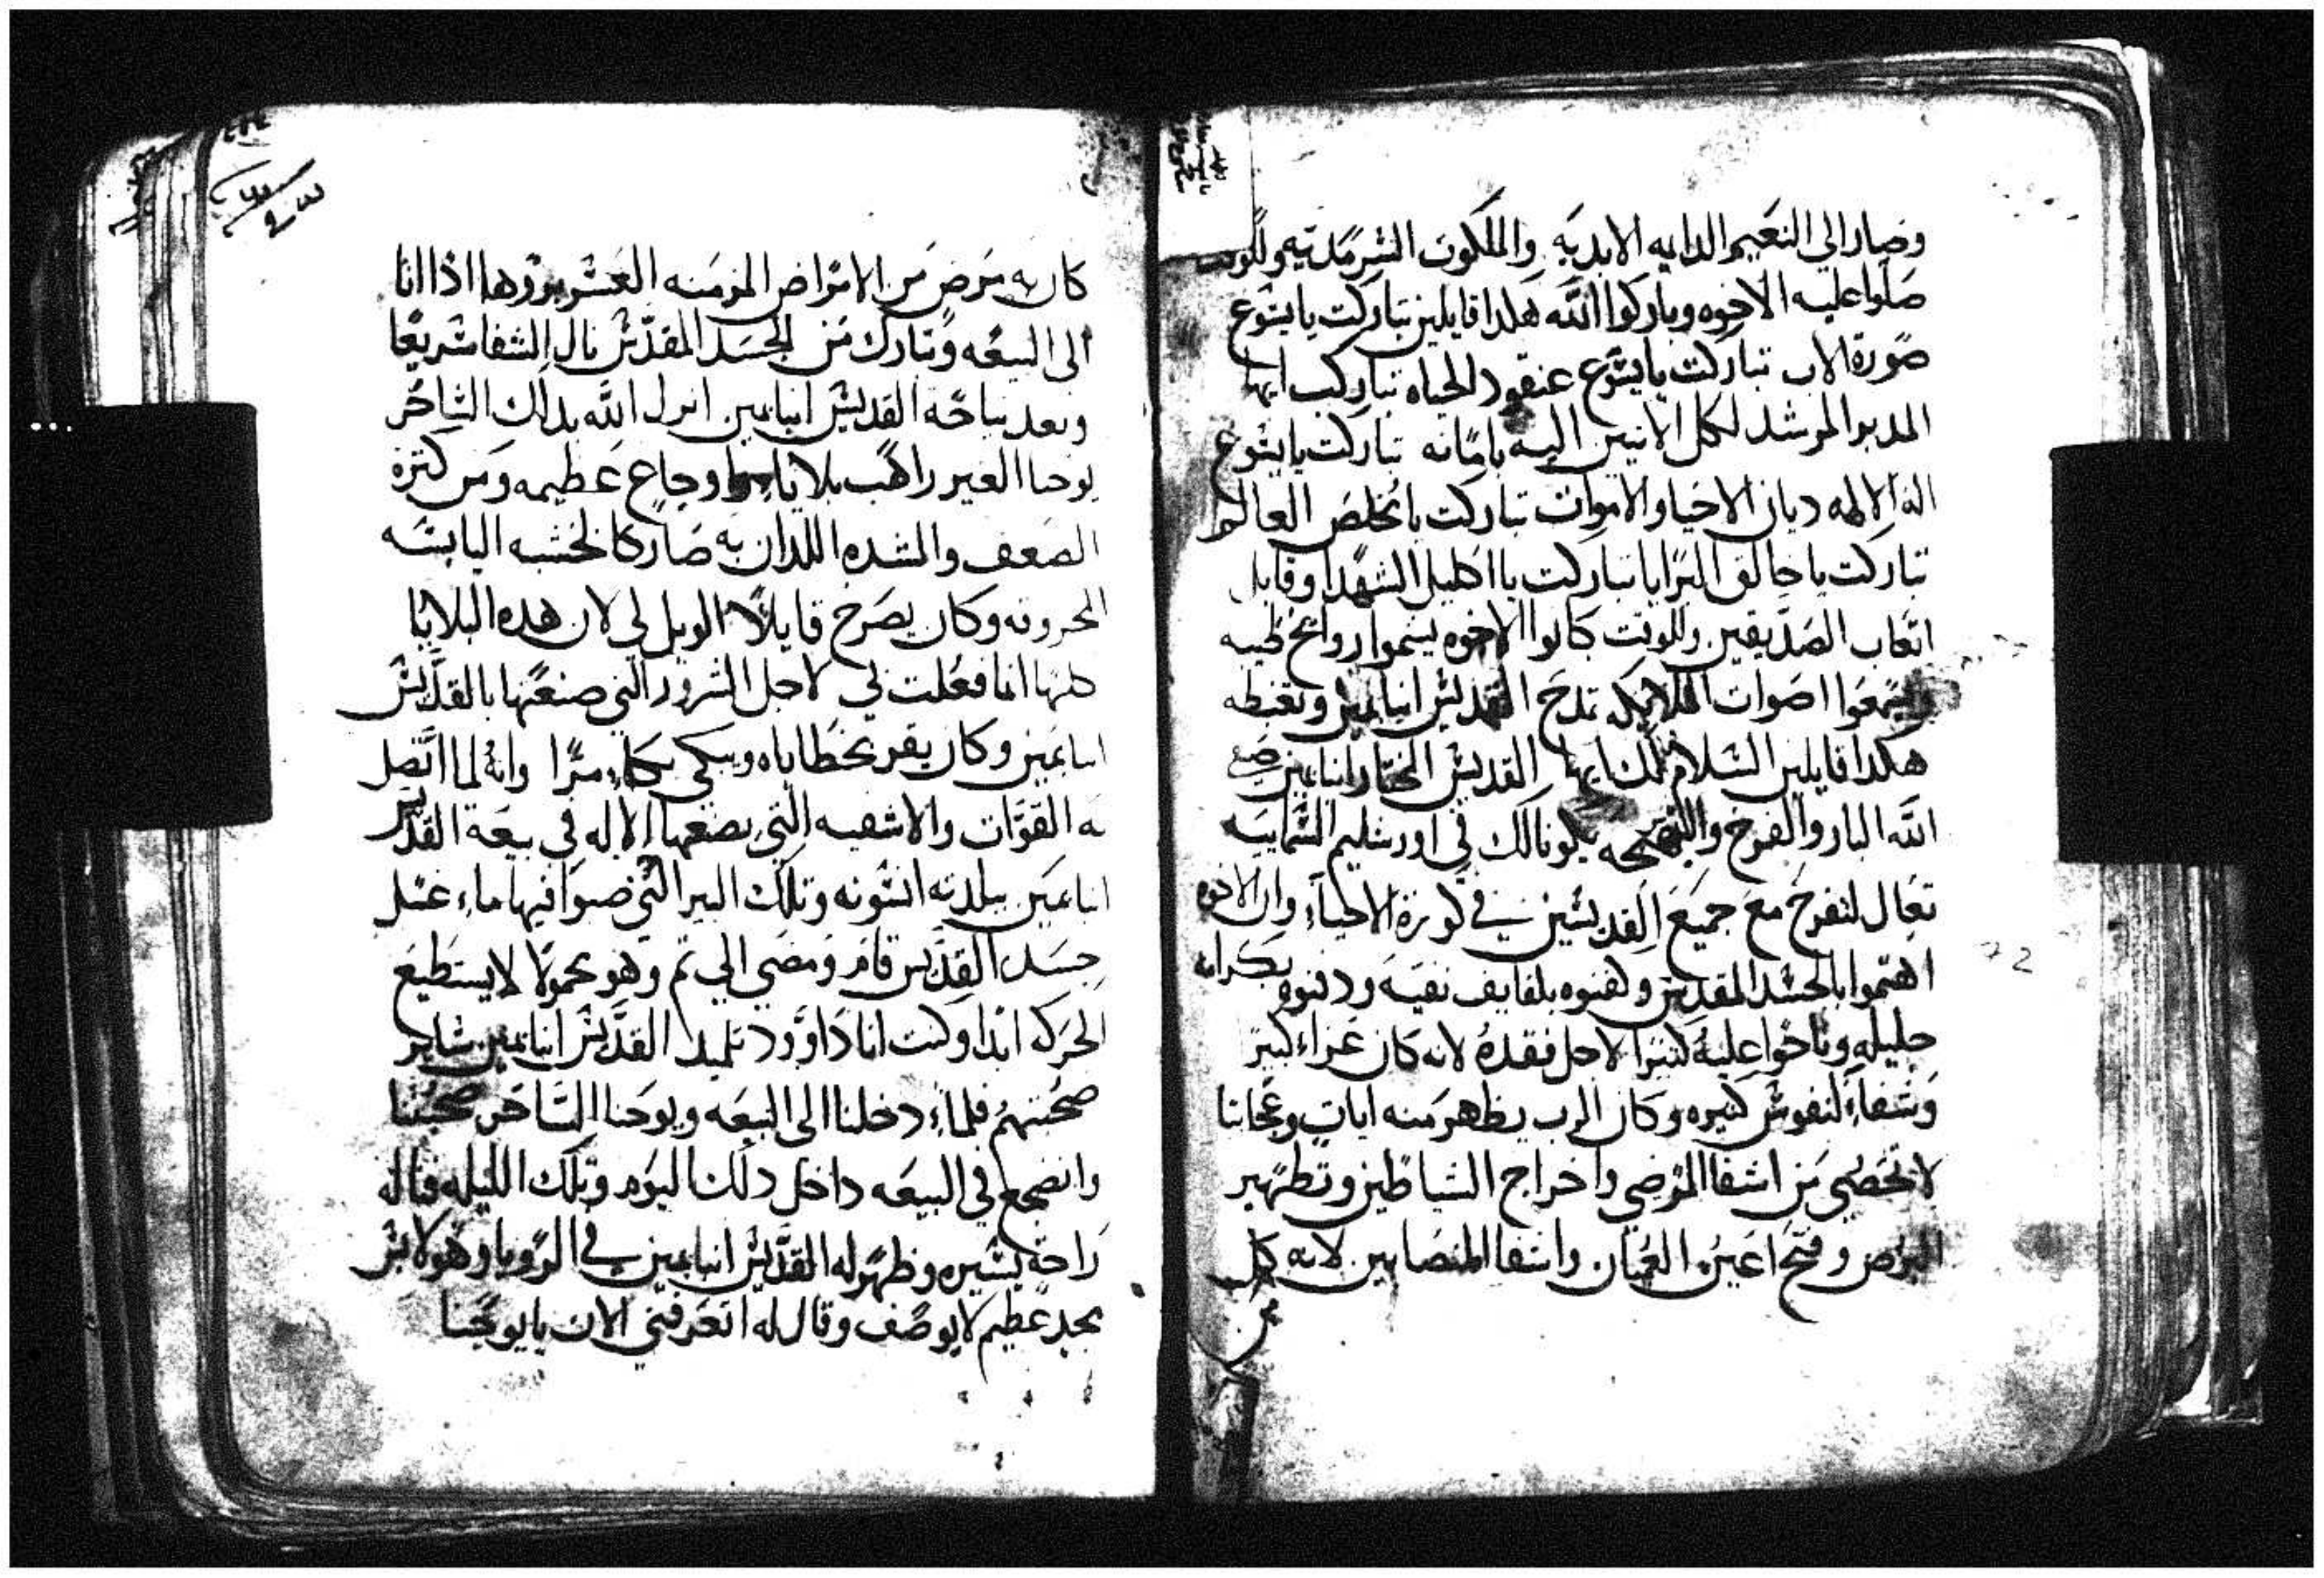 وصار الي النعيم الدايمه الابديه والملكوت السرمديه وللوقت
صلوا عليه الاخوه وباركوا الله هكدا قايلين تباركت يا يسوع
صورة الاب تباركت يا يسوع عنقود الحياه تباركت ايها
المدبر المرشد لكل الاتيين اليه بامانه تباركت يا يسوع
اله الالهه ديان الاحيا والاموات تباركت يا مخلص العالم
تباركت يا خالق البرايا تباركت يا اكليل الشهدا وقابل
اتعاب الصديقين وللوقت كانوا الاخوه يشموا روايح طيبه
ويسمعوا اصوات الملايكه تمدح القديس انبا يمين وتغبطه
هكدا قايلين السلام لك ايها القديس المختار انبا يمين صفي
الله البار والفرح والبهجه يكونا لك في اورشليم السماييه
تعال لتفرح مع جميع القديسين في كورة الاحياء وان الاخوه
اهتموا بالجسد المقدس وكفنوه بلفايف نقيه ودفنوه بكرامه
جليله وناحوا عليه كتيرا لاجل فقده لانه كان عزاء كبير
وشفاء لنفوس كتيره وكان الرب يظهر منه ايات وعجايبا
لا تحصي من اشفا المرضي واخراج الشياطين وتطهير
البرص وفتح اعين العميان واشفا المنصابين لانه كل
من
كان به مرض من الامراض المزمنه العسر بروها اذا اتا
الى البيعه وتبارك من الجسد المقدس نال الشفا سريعا
وبعد نياحة القديس انبا يمين انزل الله بداك الساحر
يوحنا الغير راهب بلايا واوجاع عظيمه ومن كترة
الضعف والشده اللدان به صار كالخشبه اليابسه
المحروقه وكان يصرخ قايلا الويل لي لان هده البلايا
كلها انما فعلت لي لاجل الشرور التي صنعتها بالقديس
انبا يمين وكان يقر بخطاياه ويبكي بكاء مرا وانه لما اتصل
به القوات والاشفيه التي يصنعها الاله في بيعة القديس
انبا يمين ببلدته انسونه وتلك البير التي صبوا فيها ماء غسل
جسد القديس قام ومضي الي تم وهو محمولا لا يستطيع
الحركه ابدا وكنت انا داوود تلميد القديس انبا يمين ساير
صحبتهم فلماء دخلنا الى البيعه ويوحنا الساحر صحبتنا
وانضجع في البيعه داخل دلك اليوم وتلك الليله فناله
راحة يسيره وظهر له القديس انبا يمين في الرويا وهو لابس
مجد عظيم لا يوصف وقال له اتعرفني الان يا يوحنا
72